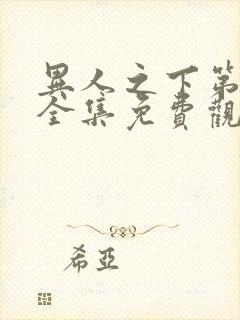 異人之下第
全集免費觀
希亞